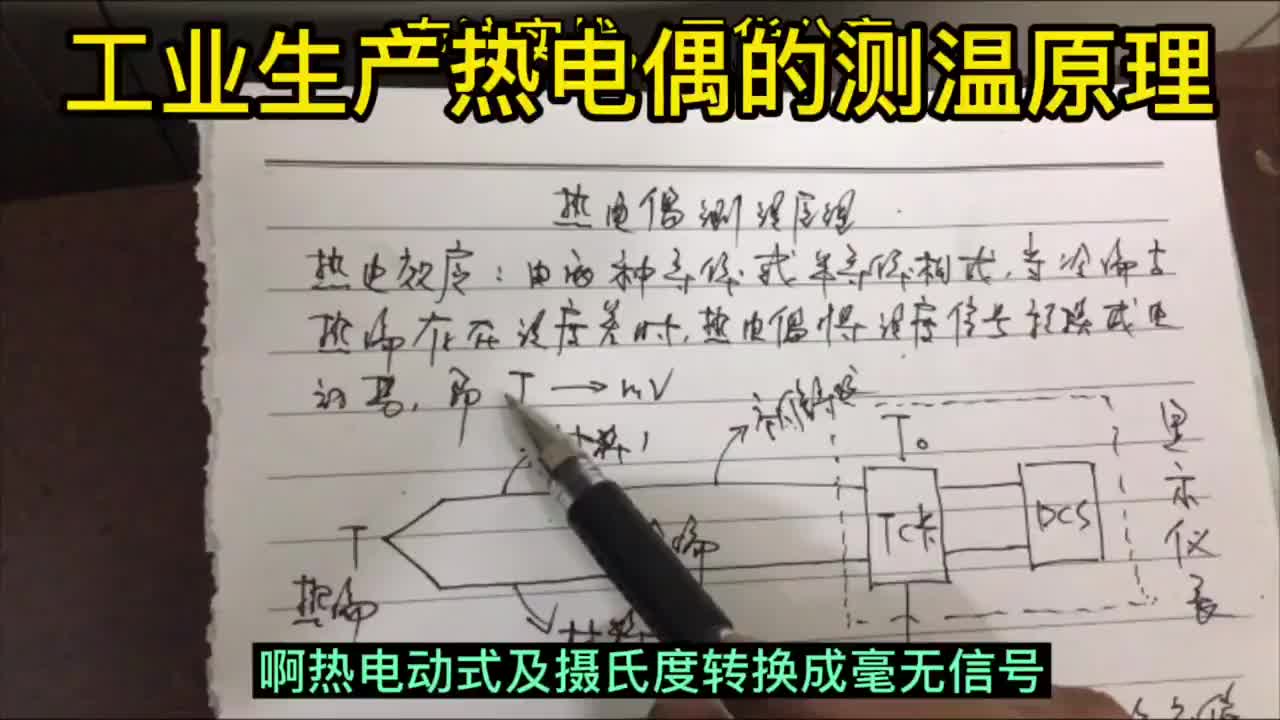 工业生产热电偶的测温原理
热电偶测温原理
热电效应：由两种导体或半导体构成，当冷端与
热端存在温度差时，热电偶将温度信号转换成电
讯号，即 T → mV
材料1
补偿导线
T₀
显示仪表
T
TC卡
DCS
冷端
热端
材料
啊热电动式及摄氏度转换成毫无信号